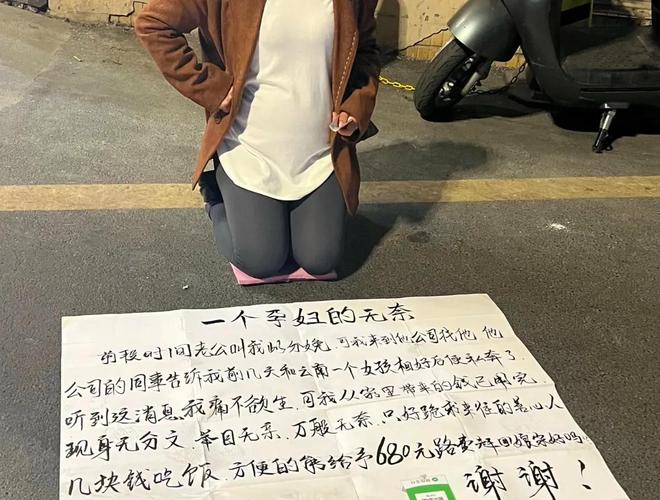 一个孕妇的无奈
前段时间老公叫我的分娩，可我来到他公司找他，他
公司的同事告诉我前几天和云南一个女孩相好后便私奔了
听到这消息我痛不欲生，可我从家里带来的钱已用完
现身无分文，举目无亲，万般无奈，只好跪求来往的爱心人
几块钱吃饭，方便的能给予680元路费
谢谢！